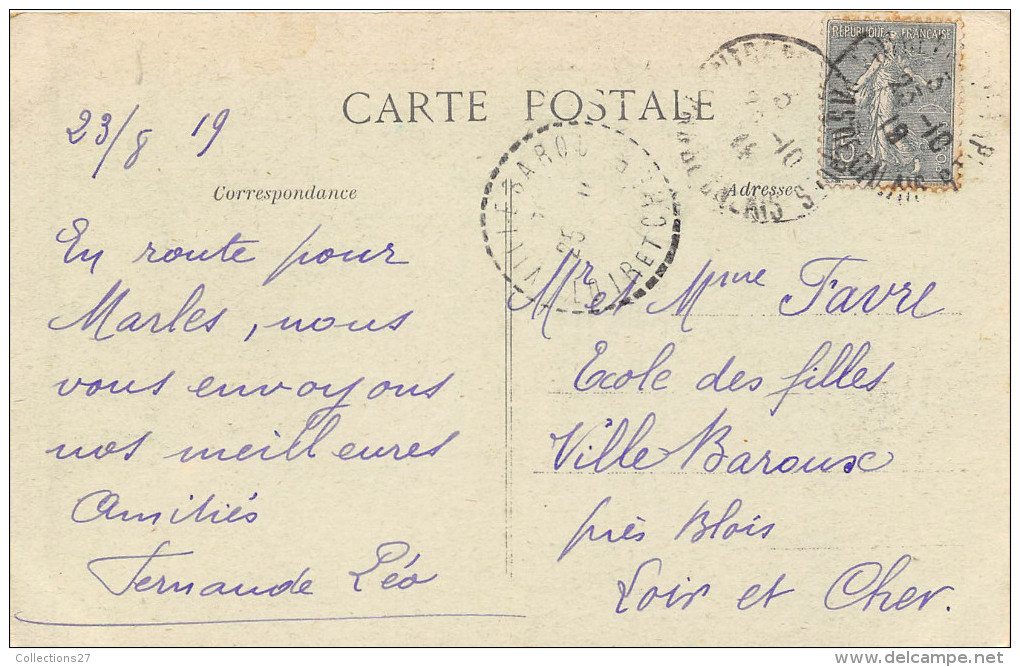 CARTE POSTALE
23/8 19
Correspondance
Adresse
RÉPUBLIQUE FRANÇAISE
En route pour
Marles, nous
vous envoyons
nos meilleures
Amitiés
Fernande Léo
Mr et Mme Favre
Ecole des filles
Ville Baroux
près Blois
Loir et Cher.
Collections27
http://www.delcampe.net